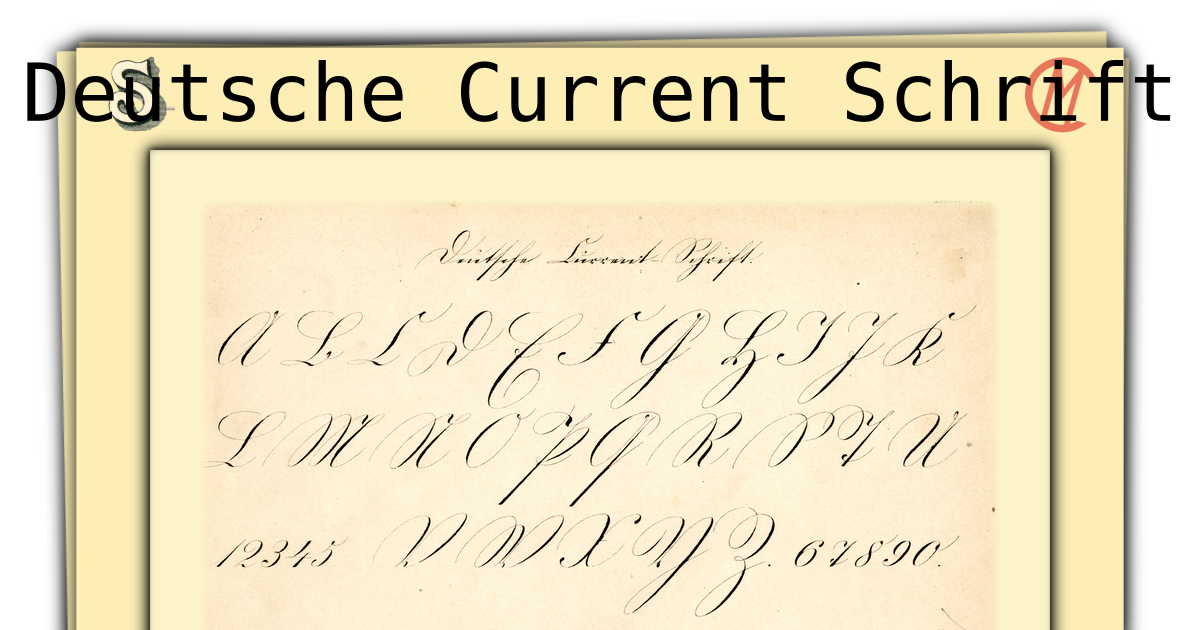 Deutsche Current Schrift
Deutsche Current-Schrift.
A B C D E F G H I J K
L M N O P Q R S T U
12345 V W X Y Z. 67890.